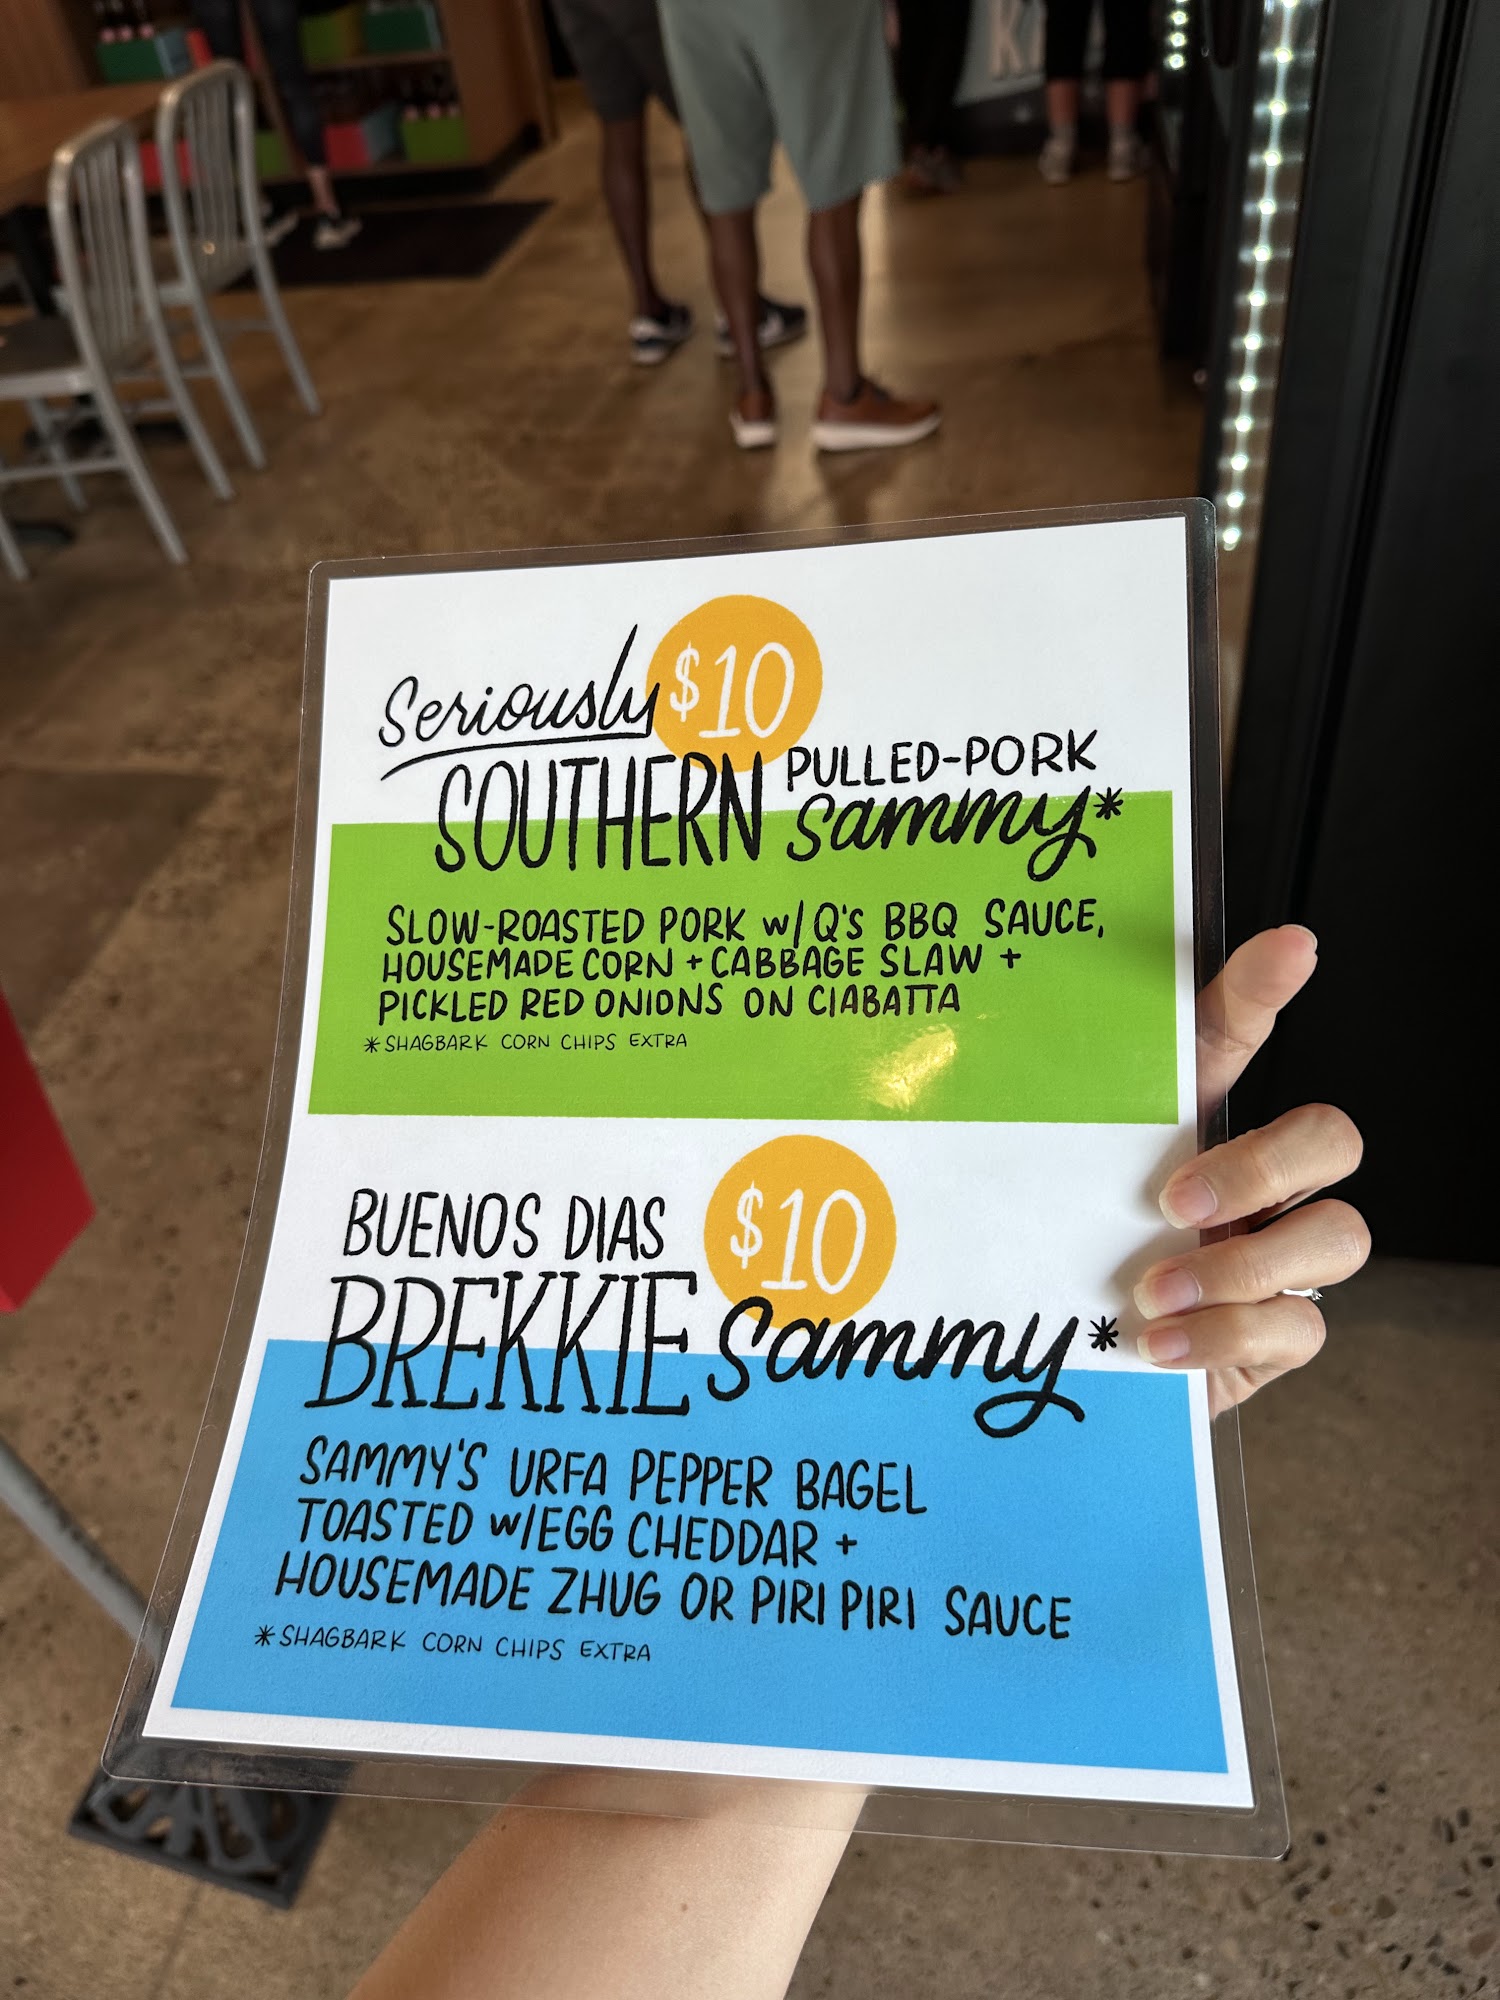 Seriously $10
SOUTHERN PULLED-PORK
Sammy*
SLOW-ROASTED PORK w/Q'S BBQ SAUCE,
HOUSEMADE CORN + CABBAGE SLAW +
PICKLED RED ONIONS ON CIABATTA
*SHAGBARK CORN CHIPS EXTRA
BUENOS DIAS $10
BREKKIE Sammy*
SAMMY'S URFA PEPPER BAGEL
TOASTED w/EGG CHEDDAR +
HOUSEMADE ZHUG OR PIRI PIRI SAUCE
*SHAGBARK CORN CHIPS EXTRA